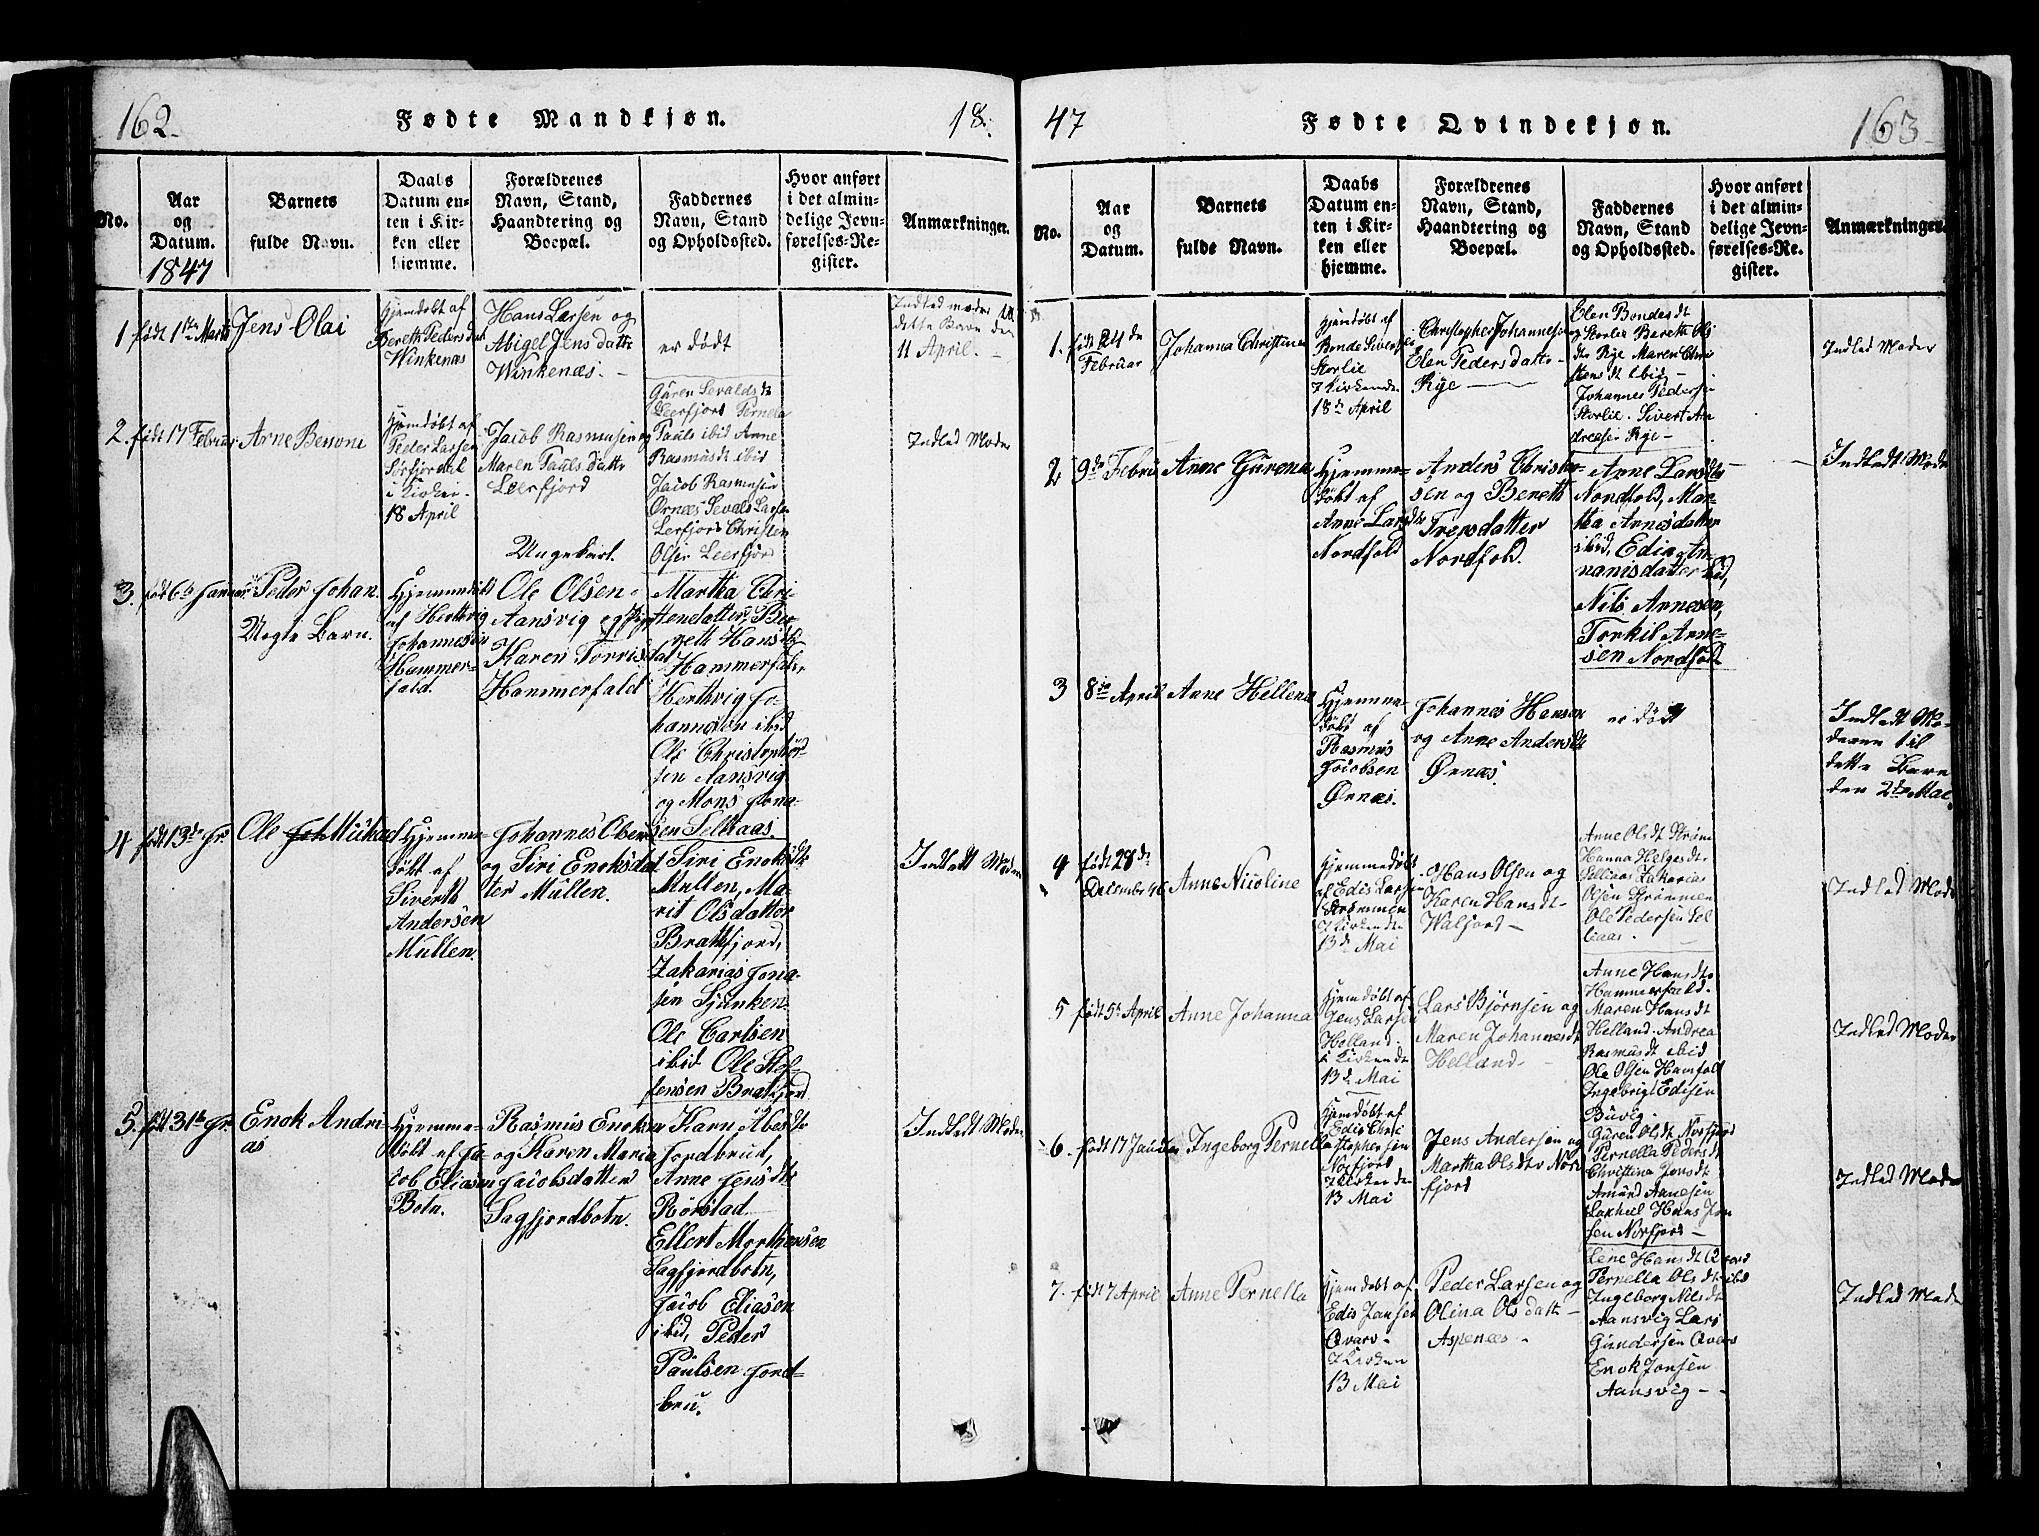 162.
Fødte Mandkjøn.
18.
No.
Aar
og
Datum.
1847
Barnets
fulde Navn.
Daabs
Datum en-
ten i Kir-
ken eller
hjemme.
Forældrenes
Navn, Stand,
Haandtering og
Boepæl.
Faddernes
Navn, Stand
og Opholdssted.
Hvor anført
i det almin-
delige Jevn-
førelses-Re-
gister.
Anmærkninger.
1
født 1ste Marts
Jens Olai
Hjemdøbt af
Bereth Pedersdat
Winkenæs
Hans Larsen og
Abigel Jens datt
Winkenæs. -
er dødt
Indled moder til
dette Barn den
11 April. -
2.
født 17 Februar
Arne
Hjemdøbt af
Peder Larsen
Sørfjorden
i Kirken
18 April
Jacob Rasmusen og
Maren Pauls datt
Leerfjord
Guren Sevalds dt
Leerfjord Pernela
Pauls ibid Anne
Rasmusdt ibid
Jacob Rasmusen
Ørnæs Sevals Larsen
Lerfjord Christen
Olsen Leerfjord
Indled Moder
3.
født 6te Januar
Peder Johan
Uegte Barn.
Hjemmedøbt
af Herthvig
Johannesen
Hammer-
fald.
Ungekarl.
Ole Olsen
Aansvig og Pige
Karen Torrisdat
Hammerfald
Martha Chri-
stensdatter, Be-
reth Hansdtr
Hammerfald,
Herthvig Jo-
hannesen ibid
Ole Christopher-
sen Aansvig
og Mons Jona-
sen Sellaas.
4
født 13de Jr.
Ole Joh Mickal
Hjemme-
døbt af
Siverth
Andersen
Mullen.
Johannes Olsen
og Siri Enoksdat
ter Mullen.
Siri Enoksdtr
Mullen, Ma-
rit Olsdatter
Brattfjord,
Zakarias Jona-
sen Sjunken
Ole Carlsen
ibid Ole Stef-
fensen Bratfjord
Indledt Moder
5.
født 31te Jr.
Enok Andri-
as
Hjemme-
døbt af Ja-
cob Eliasen
Botn.
Rasmus Enoksen
og Karen Maria
Jacobsdatter
Sagfjordbotn.
Karn Abesdtr
Jordbrud,
Anne Jensdtr
Rørstad
Ellert Morthensen
Sagfjordbotn,
Jacob Eliasen
ibid, Peder
Paulsen Jord-
bru.
Indledt Moder
47
Fødte Qvindekjøn.
163
No.
Aar
og
Datum.
Barnets
fulde Navn.
Daabs
Datum en-
ten i Kir-
ken eller
hjemme.
Forældrenes
Navn, Stand,
Haandtering og
Boepæl.
Faddernes
Navn, Stand
og Opholdssted.
Hvor anført
i det almin-
delige Jevn-
førelses-Re-
gister.
Anmærkninger.
1.
født 24de
Februar
Johanna Christine
Hjemdøbt af
Bonde Sivertsen
Storlie
I Kirken den
18de April
Christopher Johannesen
Elen Pedersdatt -
Rye -
Elen Bondesdt
Storlie Bereth Ols
dtr Rye Maren Chri
stensdt ibid -
Johannes Pedersen
Storlie. Sivert An
dreasen Rye -
Indled Moder
2
9de Febru
Anne Gurena
Hjemme-
døbt af
Anne Larsdtr
Nordfold
Anders Christen-
sen og Bereth
Trepsdatter
Nordfold.
Anne Larsdtr
Nordfold, Mar-
tha Arnesdatter
ibid, Edin An-
nanisdatter ibid,
Nils Arnesen,
Torkil Arne-
sen Nordfold
Indledt Moder
3
8de April
Anne Hellena
Hjemme-
døbt af
Rasmus
Jacobsen
Ørnæs.
Johannes Hansen
og Anne Andersdtr
Ørnæs.
er dødt
Indledt Mo-
deren til
dette Barn
den 2den Mai.
4
født 28de
Decembr 46
Anne Nicoline
Hjemmedøbt
af Edis Larsen
Strømmen
I Kirken den
13de Mai
Hans Olsen og
Karen Hansdt -
Waljord -
Anne Olsdt Strøm
Hanna Helgesdtr
Sellaas Zakarias
Olsen Strømmen
Ole Pedersen Sel
laas.
Indled Moder
5
født 5te April
Anne Johanna
Hjemdøbt af
Jens Larsen
Helland.
i Kirken den
13de Mai
Lars Bjørnsen og
Maren Johannesdt
Helland -
Anne Hansdtr
Hammerfald.
Maren Hansdt
Helland. Andrea
Rasmusdt ibid
Ole Olsen Hamfald
Ingebrigt Edisen
Buvig.
Indled Moder
6.
født 17 Januar
Ingeborg Pernella
Hjemdøbt af
Edis Chri
stophersen
Norfjord
I Kirken den
13 Mai
Jens Andersen og
Martha Olsdtr Nor
fjord
Guren Olsdt Norfjord
Pernella Pedersdt
Christina Jensdt
Amund Aanesen
Hans Jen
sen Norfjord -
Indled Moder
7.
født 7 April
Anne Pernella
Hjemdøbt af
Edis Jansen
Qvarv -
I Kirken
13 Mai
Peder Larsen og
Olina Olsdatt -
Aspenæs -
Lene Hansdt Qvarv
Pernella Olsdt ibid
Ingeborg Nilsdt
Aansvig Lars
Gundersen Qvarv
Enok Jonsen
Aansvig - -
Indled Moder